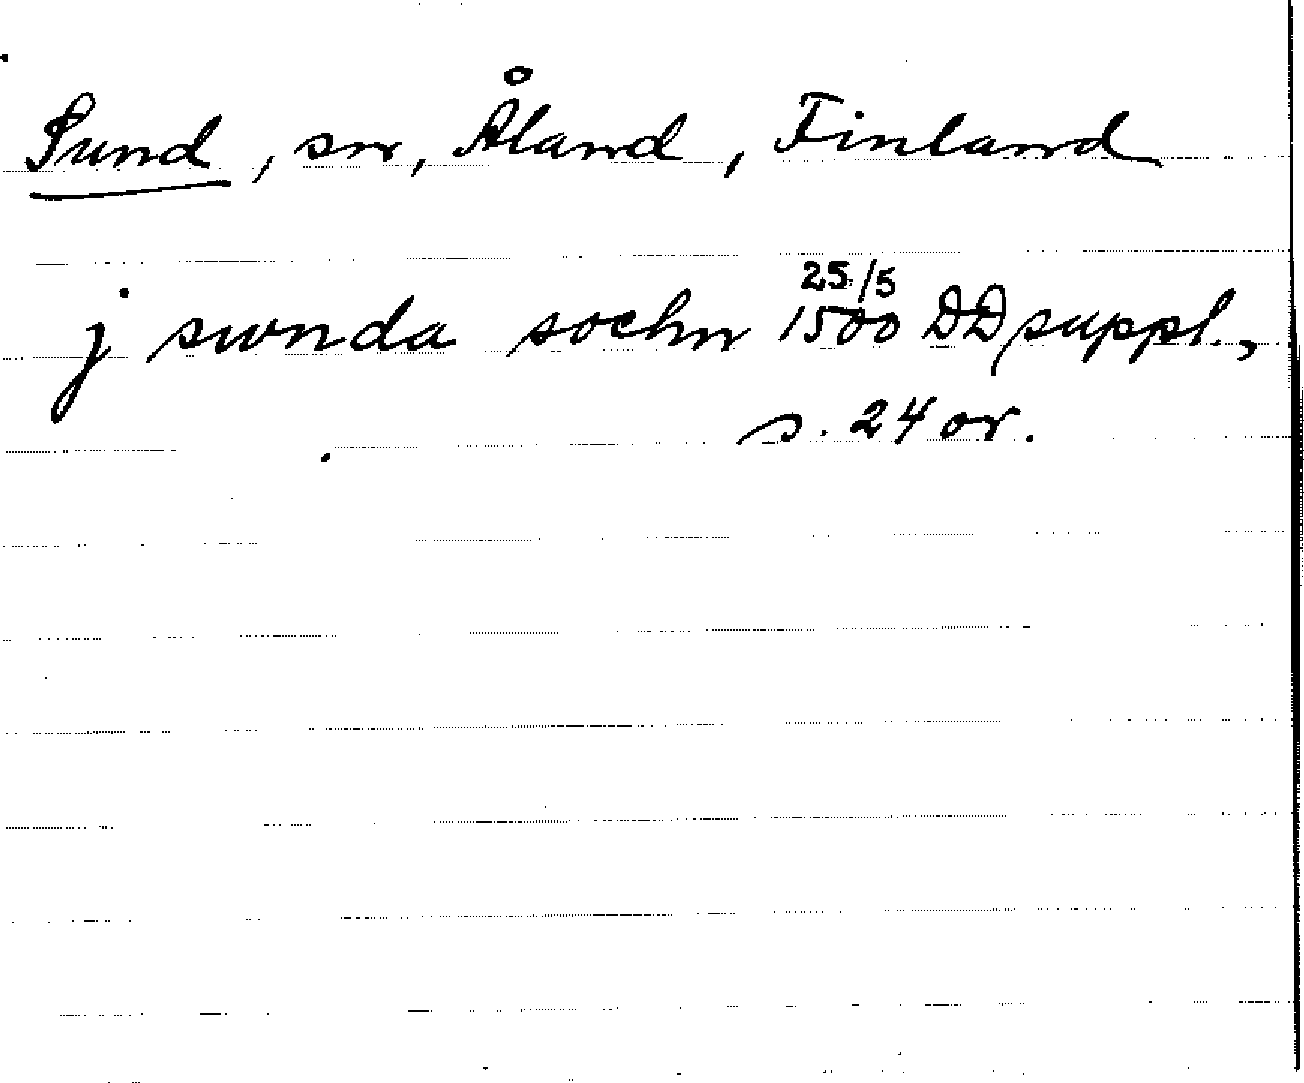 Sund, sn, Åland, Finland
j swnda sochn 25/5 1500 DD suppl.,
s. 24 or.